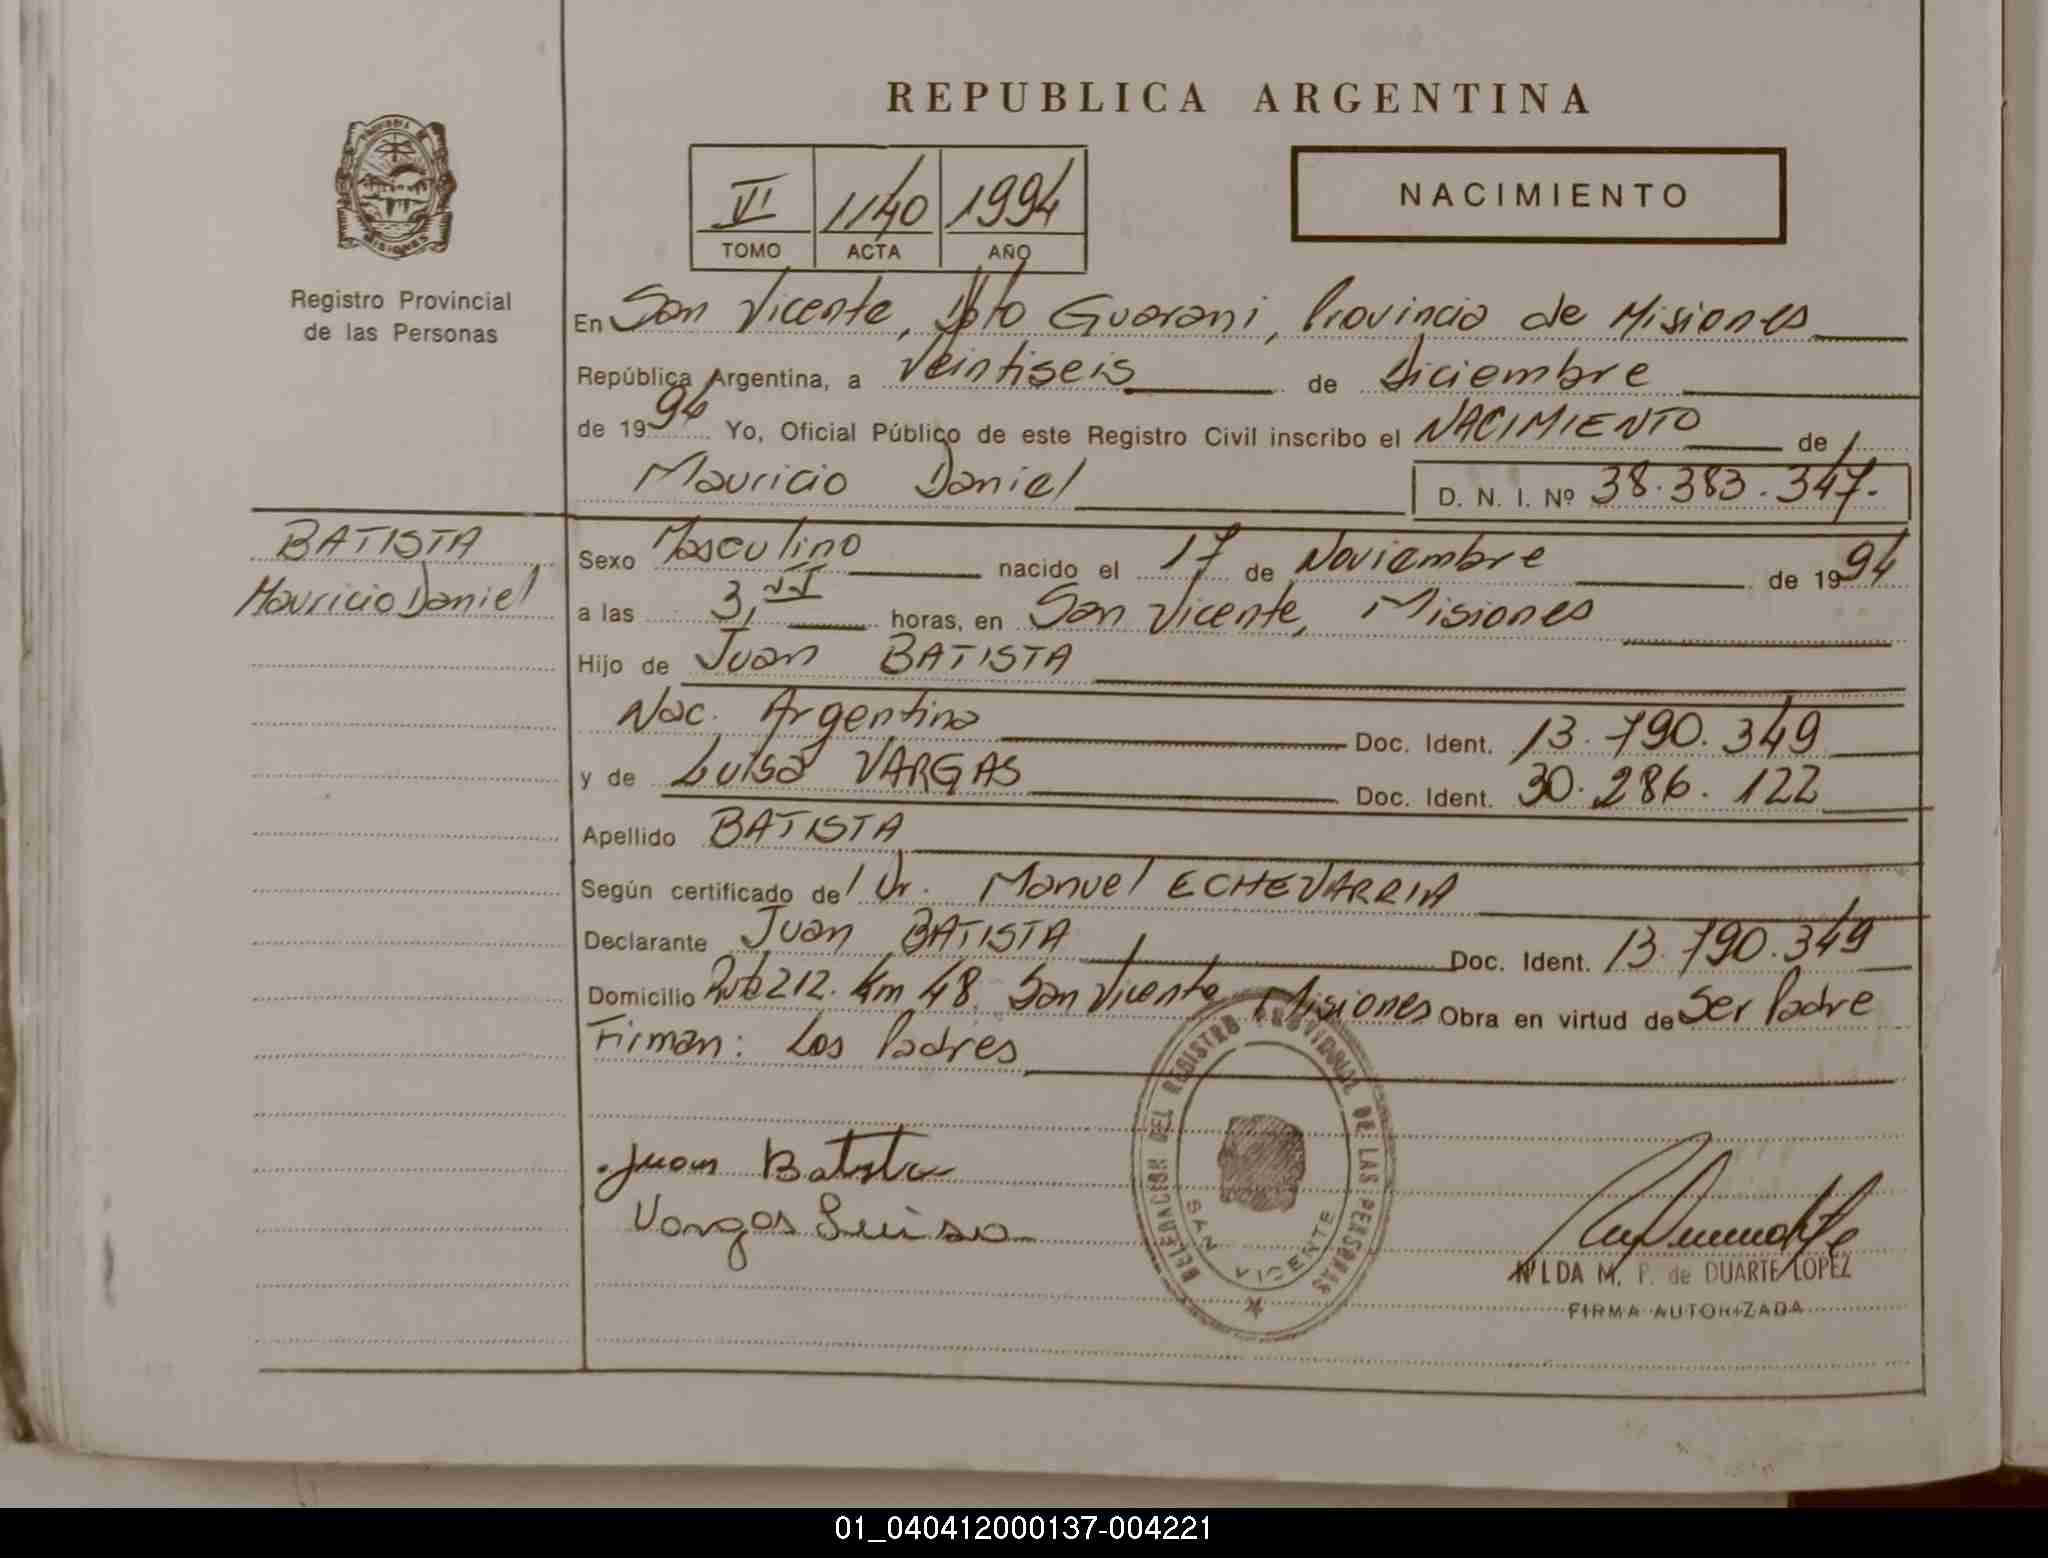 REPUBLICA ARGENTINA
VI 1140 1994
TOMO ACTA AÑO
NACIMIENTO
PROVINCIA DE MISIONES
Registro Provincial
de las Personas
En San Vicente, Dpto Guarani, Provincia de Misiones
República Argentina, a Veintiseis de Diciembre
de 1994 Yo, Oficial Público de este Registro Civil inscribo el NACIMIENTO de
Mauricio Daniel D. N. I. Nº 38.383.347.
BATISTA
Mauricio Daniel
Sexo Masculino nacido el 17 de Noviembre de 1994
a las 3, horas, en San Vicente, Misiones
Hijo de Juan BATISTA
Nac. Argentina Doc. Ident. 13.790.349
y de Luisa VARGAS Doc. Ident. 30.286.122
Apellido BATISTA
Según certificado del Dr. Manuel ECHEVARRIA
Declarante Juan BATISTA Doc. Ident. 13.790.349
Domicilio Ruta 212. Km 48. San Vicente Misiones Obra en virtud de Ser Padre
Firman: Los Padres
Juan Batista
Vargas Luisa
DELEGACION DEL REGISTRO PROVINCIAL DE LAS PERSONAS
SAN VICENTE
NILDA M. P. de DUARTE LOPEZ
FIRMA AUTORIZADA
01_040412000137-004221